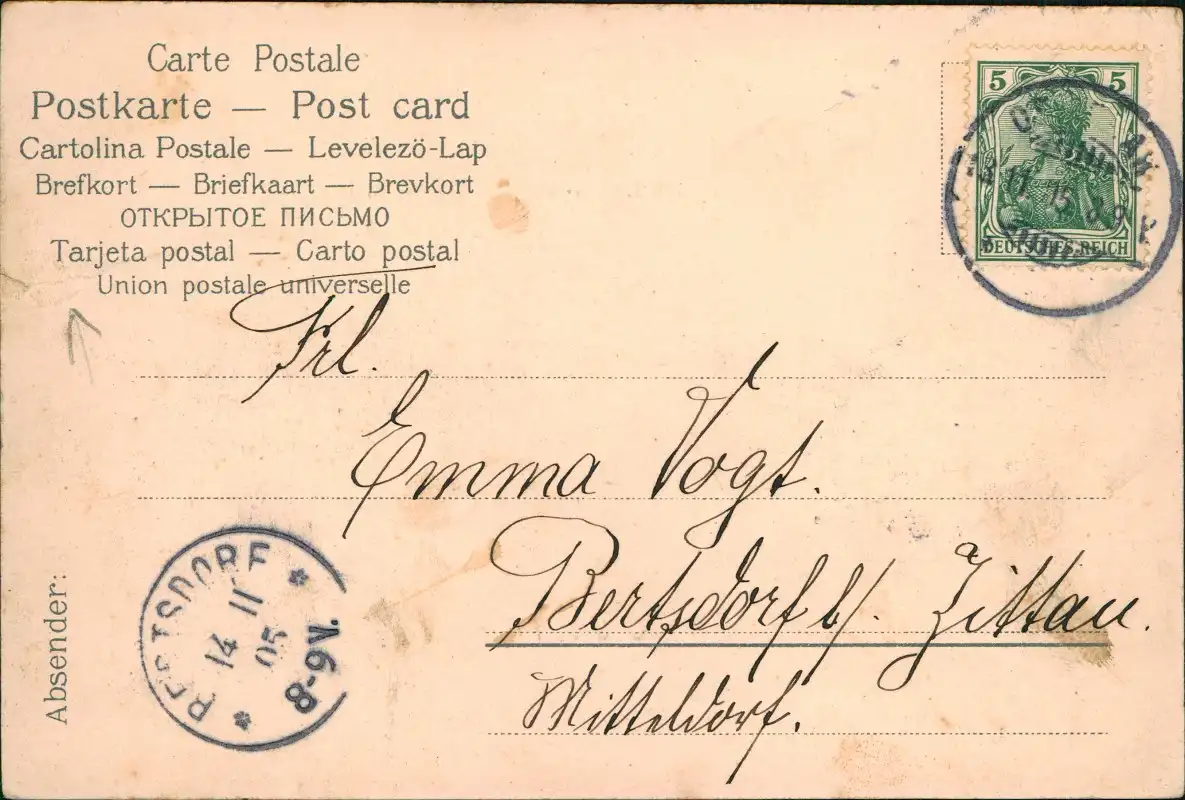 Carte Postale
Postkarte — Post card
Cartolina Postale — Levelezö-Lap
Brefkort — Briefkaart — Brevkort
ОТКРЫТОЕ ПИСЬМО
Tarjeta postal — Carto postal
Union postale universelle
5 5
DEUTSCHES REICH
Frl.
Emma Vogt.
Bertsdorf b/. Zittau.
Mitteldorf.
BERTSDORF
14 11 05
8-9V.
Absender: